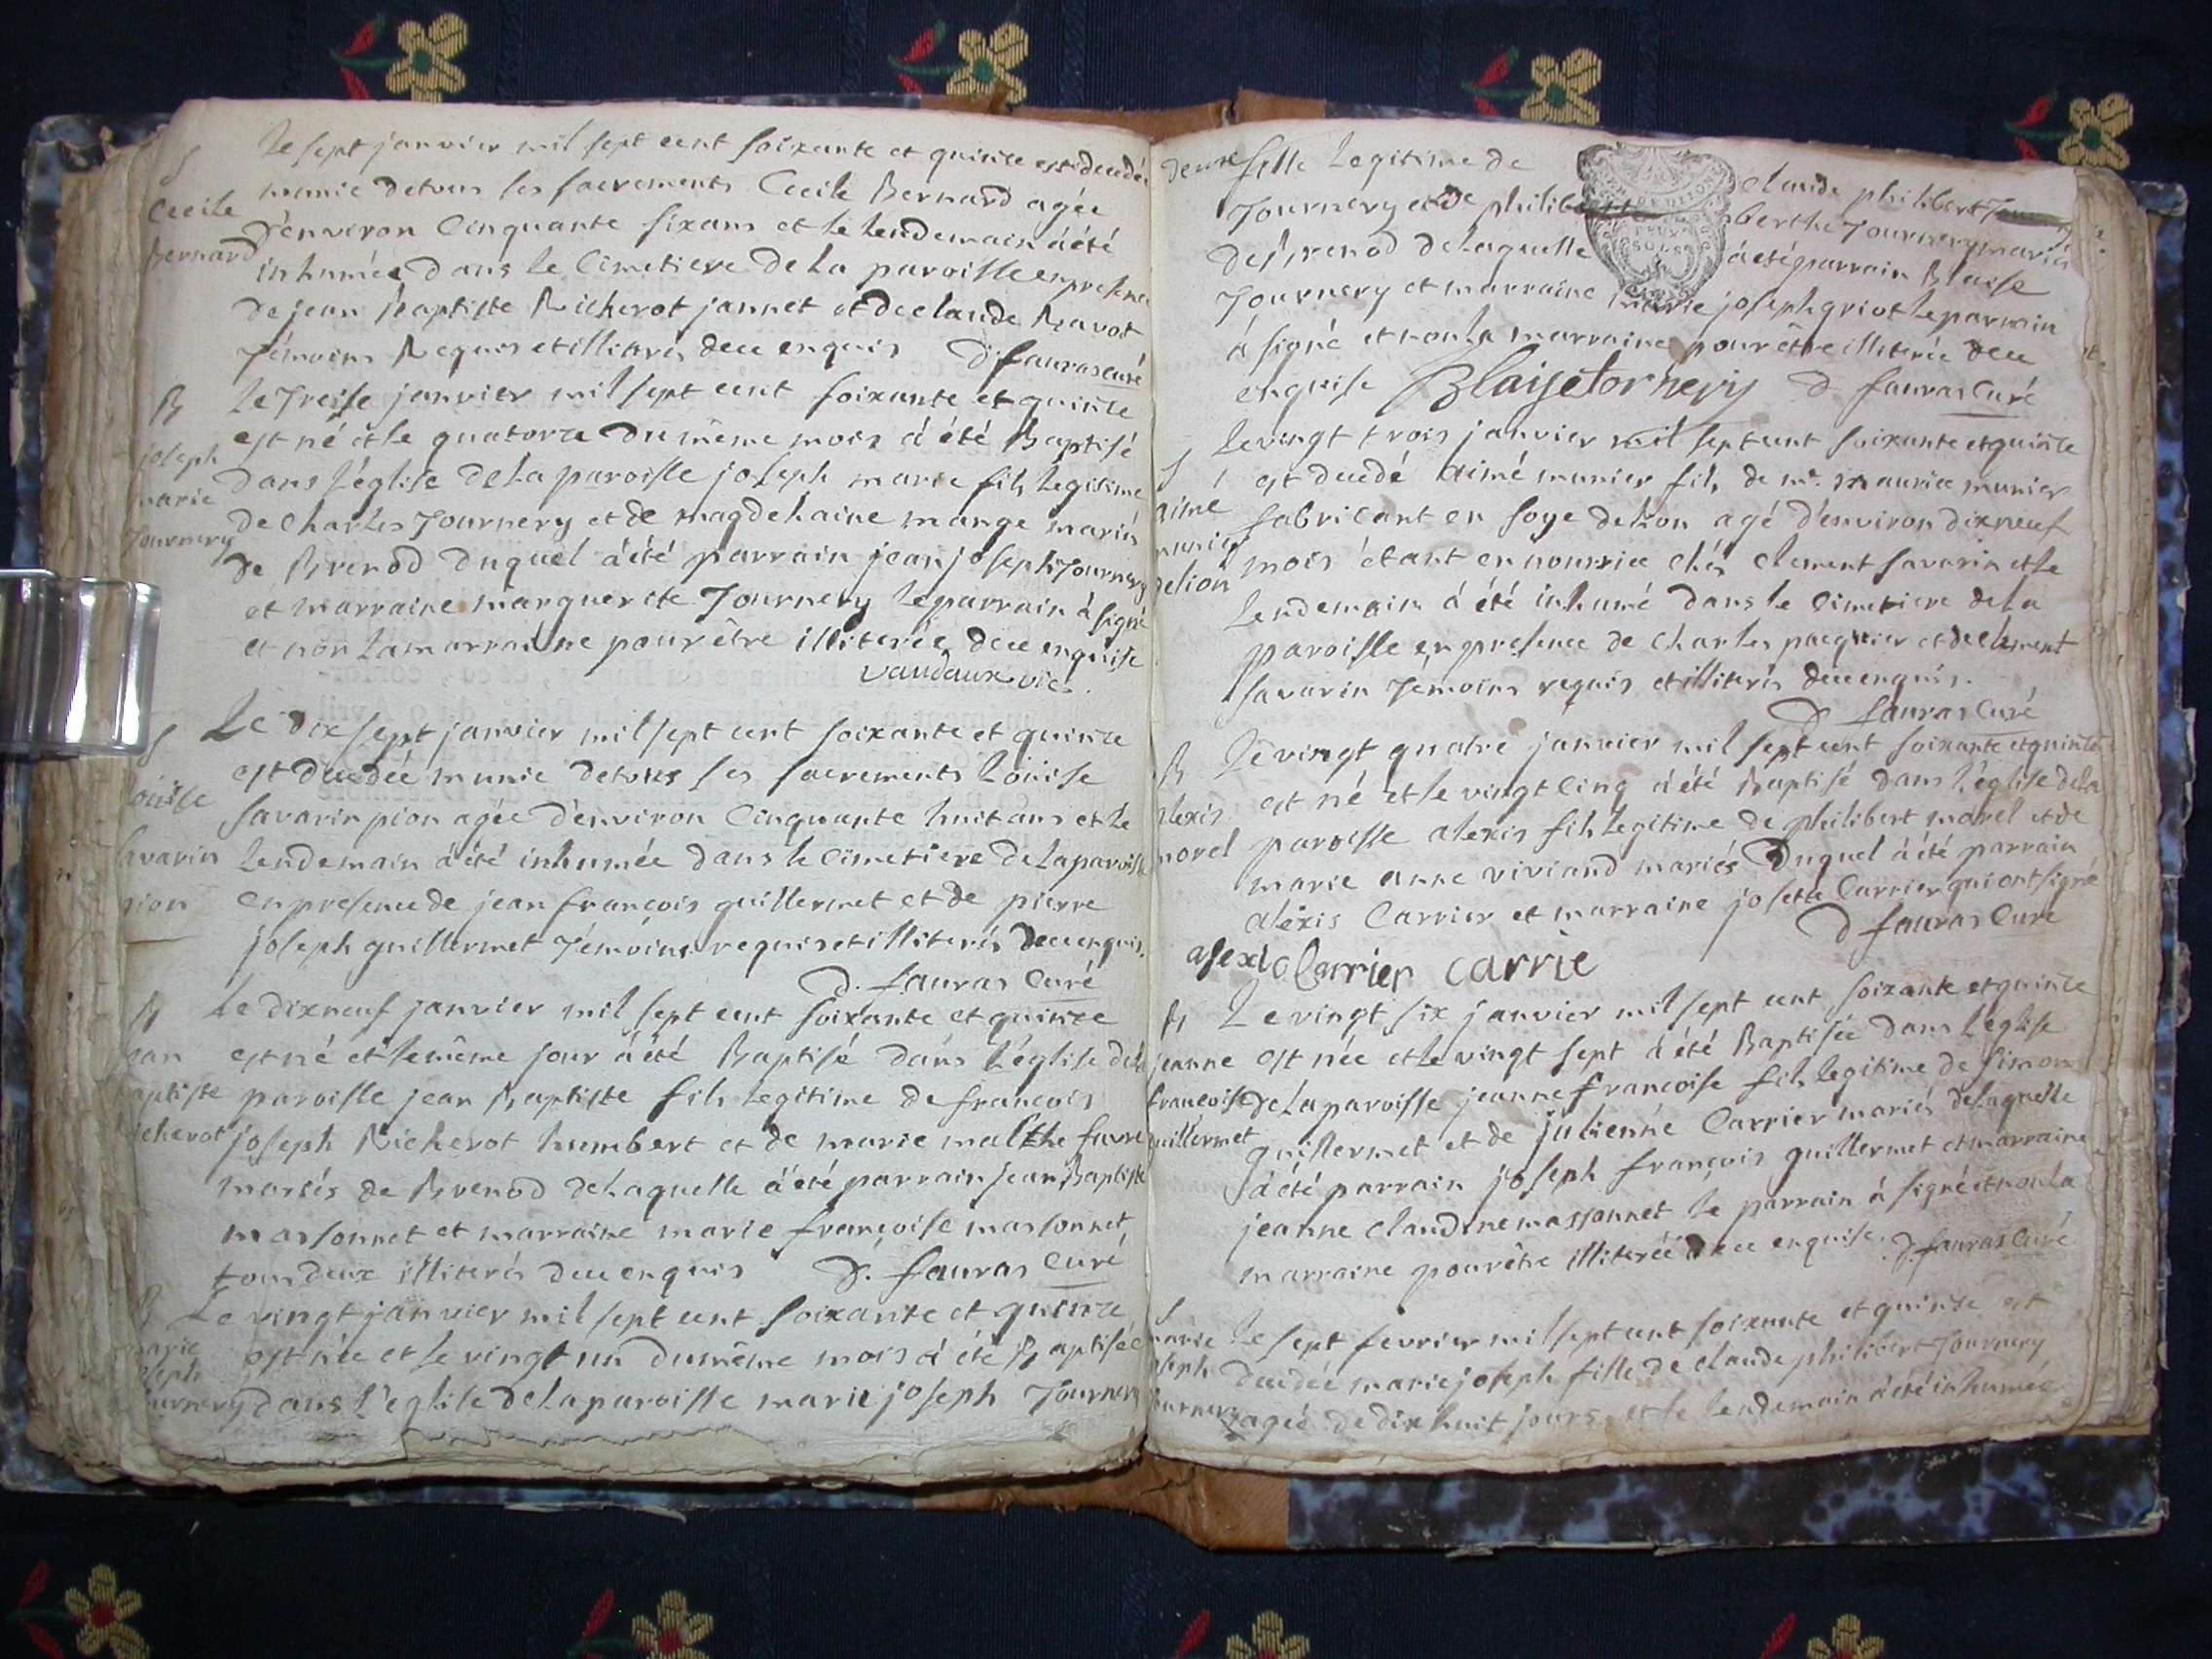 S
Cecile
Bernard
Le sept janvier mil sept cent soixante et quinze est decedée
munie detous les sacrements Cecile Bernard agée
d'environ Cinquante sixans et le lendemain à été
inhumée dans le Cimetiere de la paroisse en presence
de jean Baptiste Richerot jannet et declaude Ravot
Témoins Requis et illiterés dece enquis D. fauras curé
B
joseph
marie
Tournery
Le Treise janvier mil sept cent soixante et quinze
est né et le quatorze du même mois à été Baptisé
dans l'église dela paroisse joseph marie fils legitime
de Charles Tournery et de magdelaine mange mariés
de Brenod duquel à été parrain jean joseph Tournery
et marraine marguerite Tournery le parrain à signé
et non la marraine pour être illiterée dece enquise
vaudaux vic.
S
Loüise
savarin
pion
Le dix sept janvier mil sept cent soixante et quinze
est decedée munie detous les sacrements Loüise
savarin pion agée d'environ Cinquante huit ans et le
lendemain à été inhumée dans le Cimetiere de la paroisse
en presence de jean françois guillermet et de pierre
joseph guillermet Témoins requis et illiterés dece enquis.
D. fauras Curé
B
jean
aptiste
icherot
Le dixneuf janvier mil sept cent soixante et quinze
est né et le même jour à été Baptisé dans l'église dela
paroisse jean Baptiste fils legitime de francois
joseph Richerot humbert et de marie malthe favre
mariés de Brenod delaquelle à été parrain jean Baptiste
massonnet et marraine marie françoise massonnet
tous deux illiterés dece enquis D. fauras Curé
B
marie
joseph
Tournery
Le vingt janvier mil sept cent soixante et quinze
est née et le vingt un dumême mois à été Baptisée
dans l'église delaparoisse marie joseph Tournery
deux fille legitime de claude philibert
Tournery et de philiberthe Tournery mariés
de Brenod delaquelle à été parrain Blaise
Tournery et marraine marie joseph griot le parrain
à signé et non la marraine pour être illiterée dece
enquise Blaise tornery D. fauras Curé
S
aimé
munier
delion
Le vingt trois janvier mil sept cent soixante et quinze
est decedé aimé munier fils de mr. maurice munier
fabricant en soye de Lion agé d'environ dixneuf
mois étant en nourrice chés clement savarin et le
lendemain à été inhumé dans le Cimetiere de la
paroisse en presence de Charles pacquier et de clement
savarin Temoins requis et illiterés dece enquis.
D fauras Curé
B
alexis
morel
Le vingt quatre janvier mil sept cent soixante et quinze
est né et le vingt Cinq à été Baptisé dans l'église dela
paroisse alexis fils legitime de philibert morel et de
marie anne viviand mariés duquel à été parrain
alexis Carrier et marraine josette Carrier qui ont signé
D fauras Curé
alexi Carrier carrie
B
jeanne
francoise
guillermet
Le vingt six janvier mil sept cent soixante et quinze
est née et le vingt sept à été Baptisée dans l'église
de la paroisse jeanne francoise fils legitime de simon
guillermet et de julienne Carrier mariés delaquelle
à été parrain joseph françois guillermet et marraine
jeanne claudine massonnet le parrain à signé et non la
marraine pour être illiterée dece enquise. D. fauras Curé
S
marie
joseph
Tournery
Le sept fevrier mil sept cent soixante et quinze est
decedée marie joseph fille de claude philibert Tournery
agée de dix huit jours et le lendemain à été inhumée